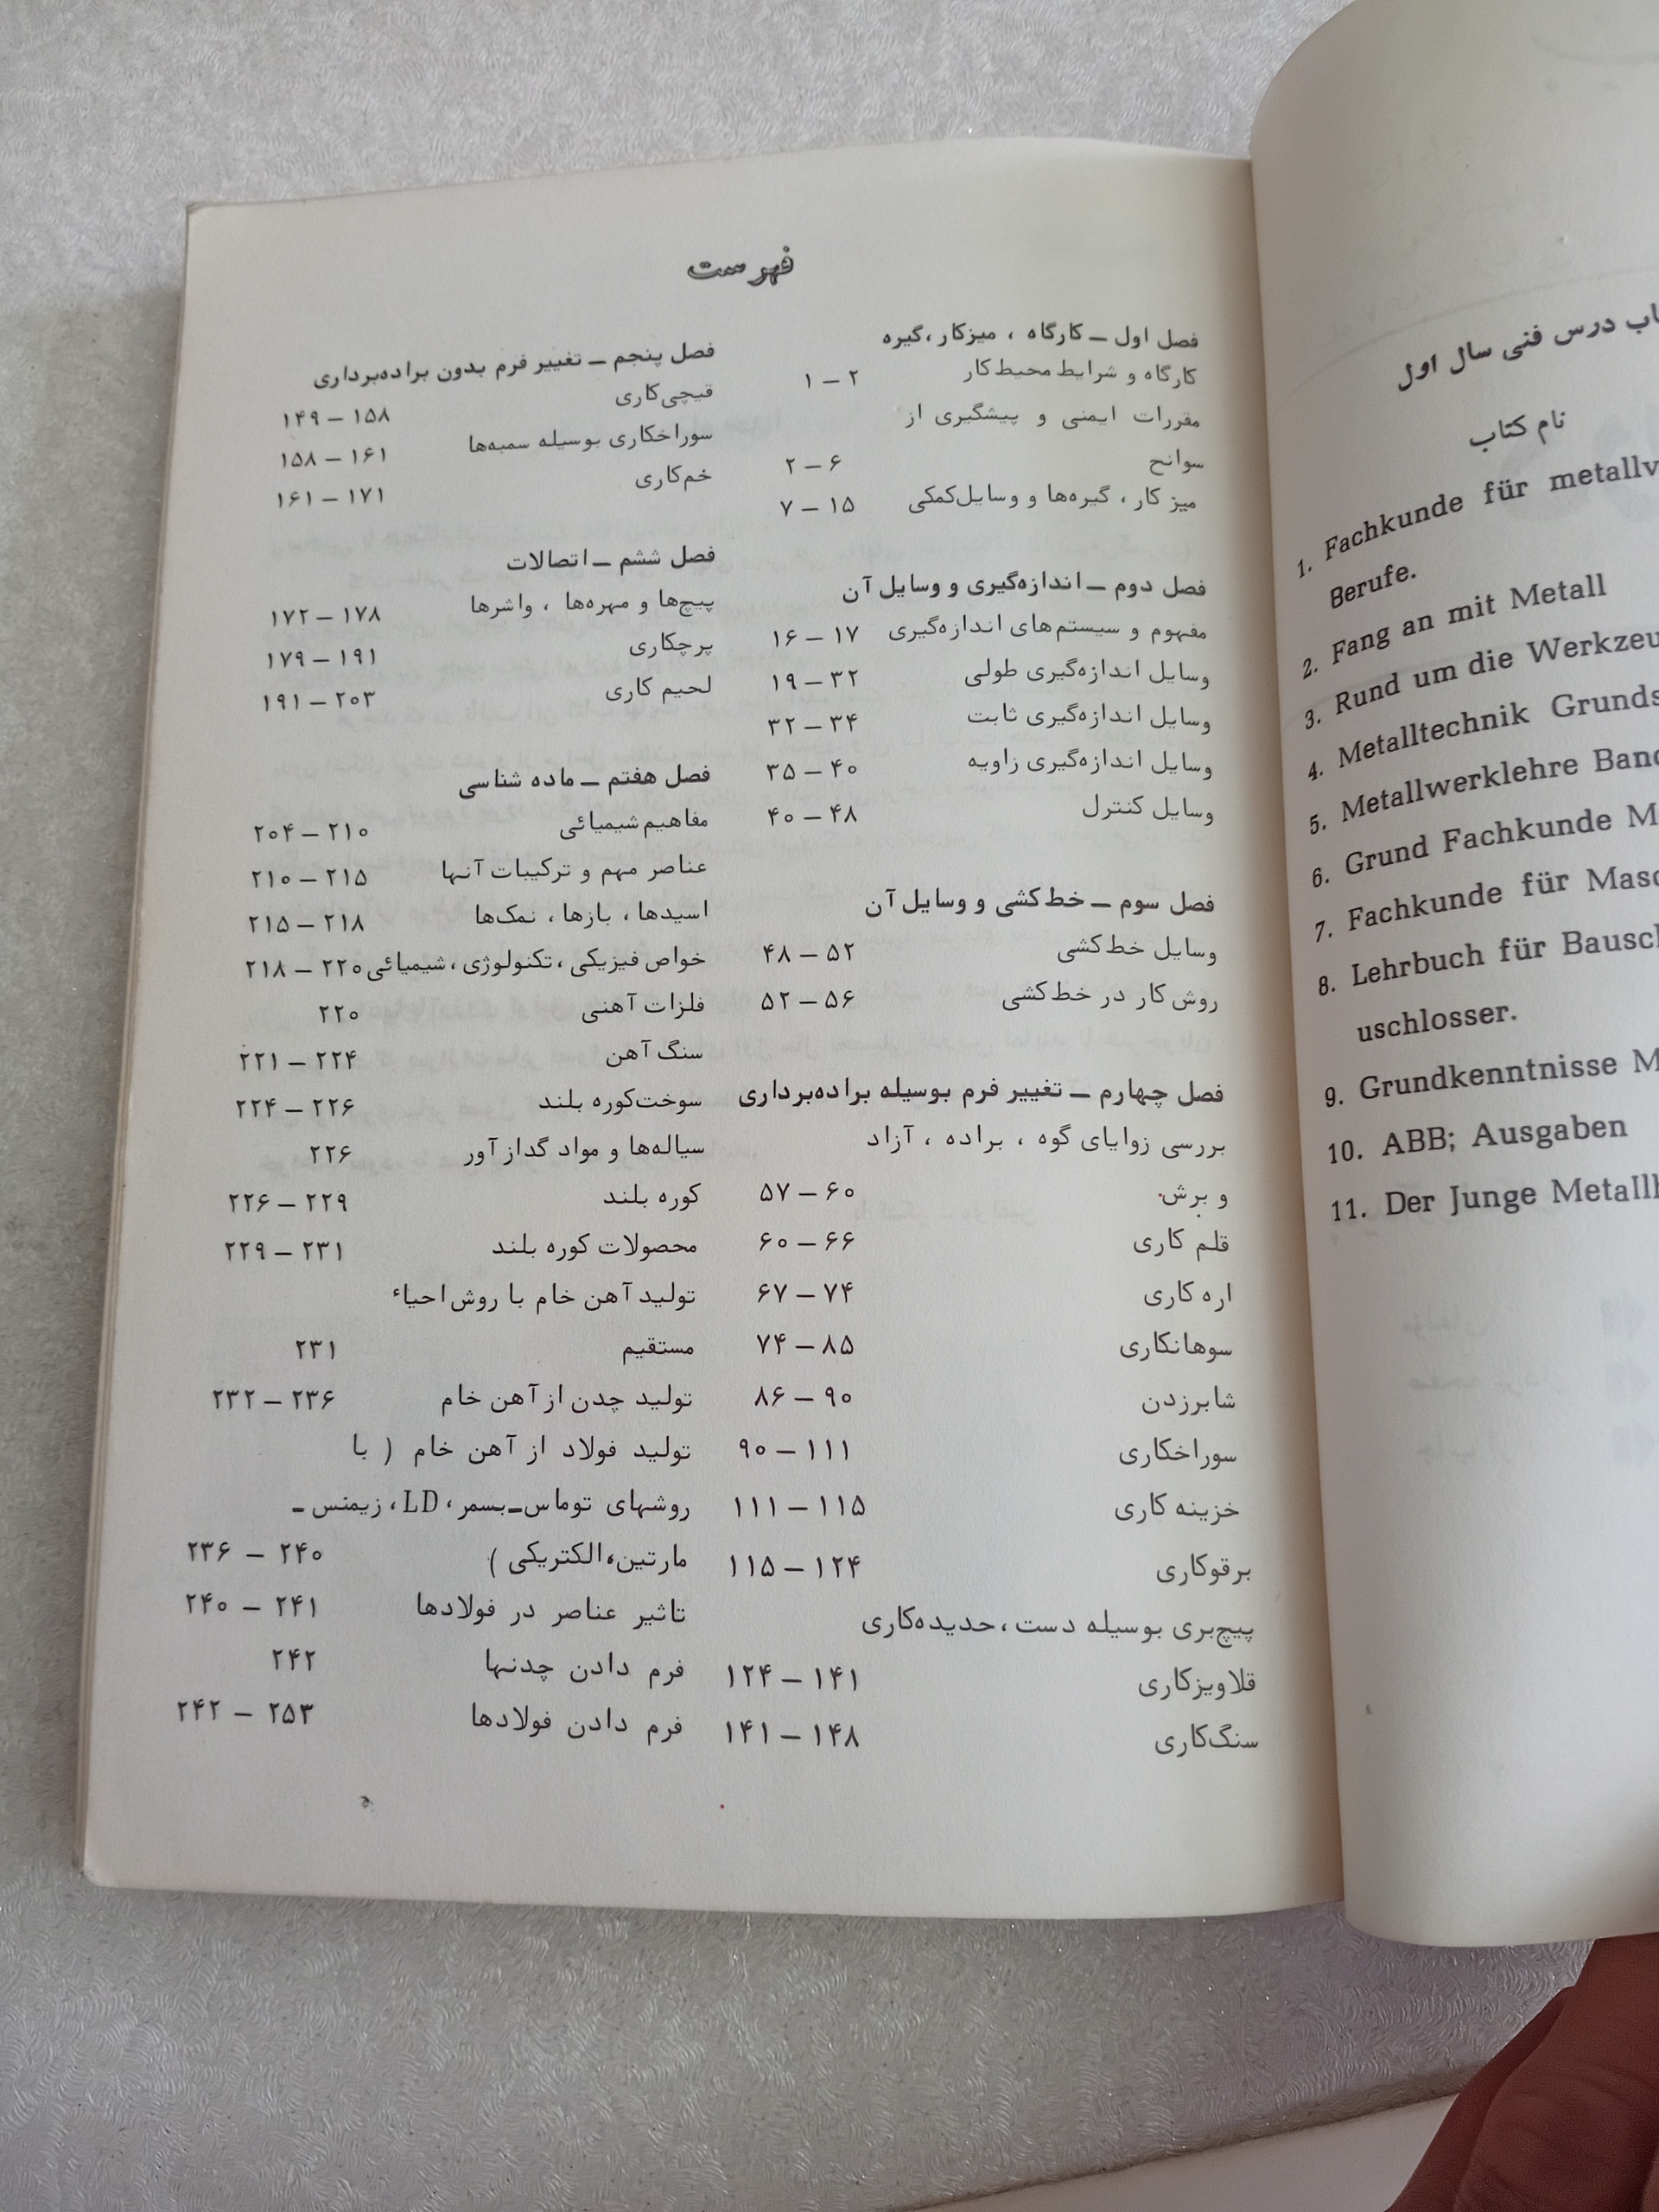 فهرست
فصل اول ــ کارگاه ، میزکار ،گیره
کارگاه و شرایط محیط کار ۱ – ۲
مقررات ایمنی و پیشگیری از
سوانح ۲ – ۶
میز کار ، گیره‌ها و وسایل کمکی ۷ – ۱۵
فصل دوم ــ اندازه‌گیری و وسایل آن
مفهوم و سیستم‌های اندازه‌گیری ۱۶ – ۱۷
وسایل اندازه‌گیری طولی ۱۹ – ۳۲
وسایل اندازه‌گیری ثابت ۳۲ – ۳۴
وسایل اندازه‌گیری زاویه ۳۵ – ۴۰
وسایل کنترل ۴۰ – ۴۸
فصل سوم ــ خط‌کشی و وسایل آن
وسایل خط‌کشی ۴۸ – ۵۲
روش کار در خط‌کشی ۵۲ – ۵۶
فصل چهارم ــ تغییر فرم بوسیله براده‌برداری
بررسی زوایای گوه ، براده ، آزاد
و برش ۵۷ – ۶۰
قلم کاری ۶۰ – ۶۶
اره کاری ۶۷ – ۷۴
سوهانکاری ۷۴ – ۸۵
شابرزدن ۸۶ – ۹۰
سوراخکاری ۹۰ – ۱۱۱
خزینه کاری ۱۱۱ – ۱۱۵
برقوکاری ۱۱۵ – ۱۲۴
پیچ‌بری بوسیله دست ،حدیده‌کاری
قلاویزکاری ۱۲۴ – ۱۴۱
سنگ‌کاری ۱۴۱ – ۱۴۸
فصل پنجم ــ تغییر فرم بدون براده‌برداری
قیچی‌کاری ۱۴۹ – ۱۵۸
سوراخکاری بوسیله سمبه‌ها ۱۵۸ – ۱۶۱
خم‌کاری ۱۶۱ – ۱۷۱
فصل ششم ــ اتصالات
پیچ‌ها و مهره‌ها ، واشرها ۱۷۲ – ۱۷۸
پرچکاری ۱۷۹ – ۱۹۱
لحیم کاری ۱۹۱ – ۲۰۳
فصل هفتم ــ ماده شناسی
مفاهیم شیمیائی ۲۰۴ – ۲۱۰
عناصر مهم و ترکیبات آنها ۲۱۰ – ۲۱۵
اسیدها ، بازها ، نمک‌ها ۲۱۵ – ۲۱۸
خواص فیزیکی ،تکنولوژی ،شیمیائی ۲۱۸ – ۲۲۰
فلزات آهنی ۲۲۰
سنگ آهن ۲۲۱ – ۲۲۴
سوخت‌کوره بلند ۲۲۴ – ۲۲۶
سیاله‌ها و مواد گداز آور ۲۲۶
کوره بلند ۲۲۶ – ۲۲۹
محصولات کوره بلند ۲۲۹ – ۲۳۱
تولید آهن خام با روش احیاء
مستقیم ۲۳۱
تولید چدن از آهن خام ۲۳۲ – ۲۳۶
تولید فولاد از آهن خام ( با
روشهای توماس–بسمر، LD، زیمنس –
مارتین،الکتریکی ) ۲۳۶ – ۲۴۰
تاثیر عناصر در فولادها ۲۴۰ – ۲۴۱
فرم دادن چدنها ۲۴۲
فرم دادن فولادها ۲۴۲ – ۲۵۳
درس فنی سال اول
نام کتاب
1. Fachkunde für
Berufe.
2. Fang an mit Metall
3. Rund um die
4. Metalltechnik
5. Metallwerklehre
6. Grund Fachkunde
7. Fachkunde für
8. Lehrbuch für
uschlosser.
9. Grundkenntnisse
10. ABB; Ausgaben
11. Der Junge